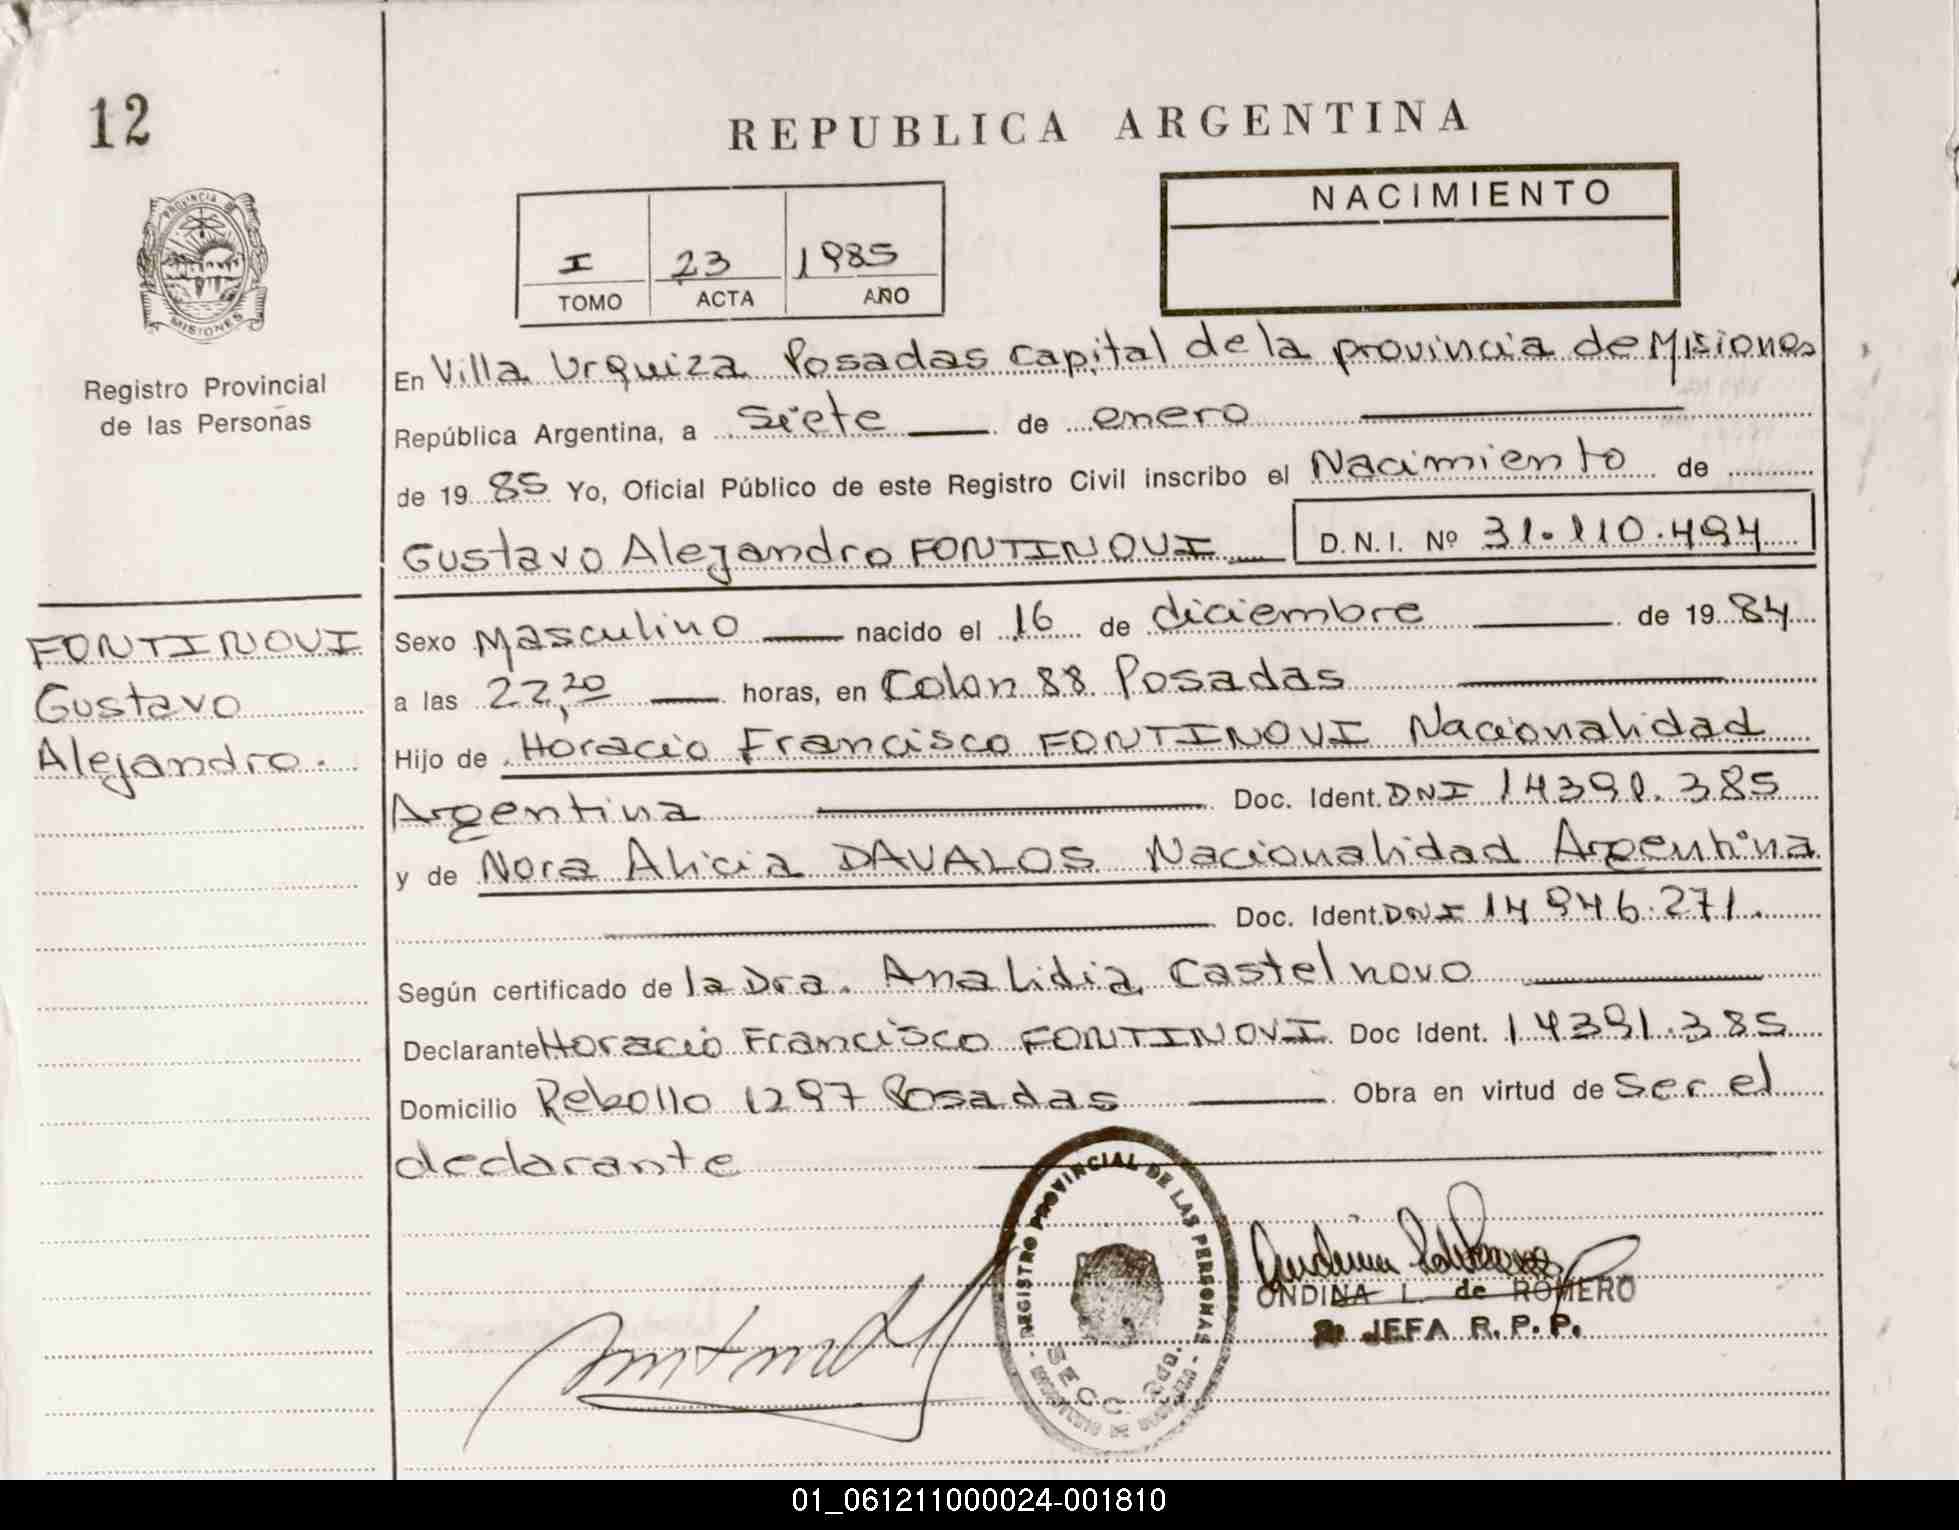 12
REPUBLICA ARGENTINA
PROVINCIA DE
MISIONES
Registro Provincial
de las Personas
I 23 1985
TOMO ACTA AÑO
NACIMIENTO
En Villa Urquiza Posadas capital de la provincia de Misiones
República Argentina, a siete de enero
de 1985 Yo, Oficial Público de este Registro Civil inscribo el Nacimiento de
Gustavo Alejandro FONTINOVI D.N.I. Nº 31.110.494
FONTINOVI
Gustavo
Alejandro.
Sexo Masculino nacido el 16 de diciembre de 1984
a las 22,20 horas, en Colon 88 Posadas
Hijo de Horacio Francisco FONTINOVI Nacionalidad
Argentina Doc. Ident. DNI 14391.385
y de Nora Alicia DAVALOS Nacionalidad Argentina
Doc. Ident. DNI 14946.271.
Según certificado de la Dra. Ana Lidia Castelnovo
Declarante Horacio Francisco FONTINOVI Doc Ident. 14391.385
Domicilio Rebollo 1297 Posadas Obra en virtud de ser el
declarante
REGISTRO PROVINCIAL DE LAS PERSONAS
SECC. 2da.
ONDINA L. de ROMERO
JEFA R. P. P.
01_061211000024-001810